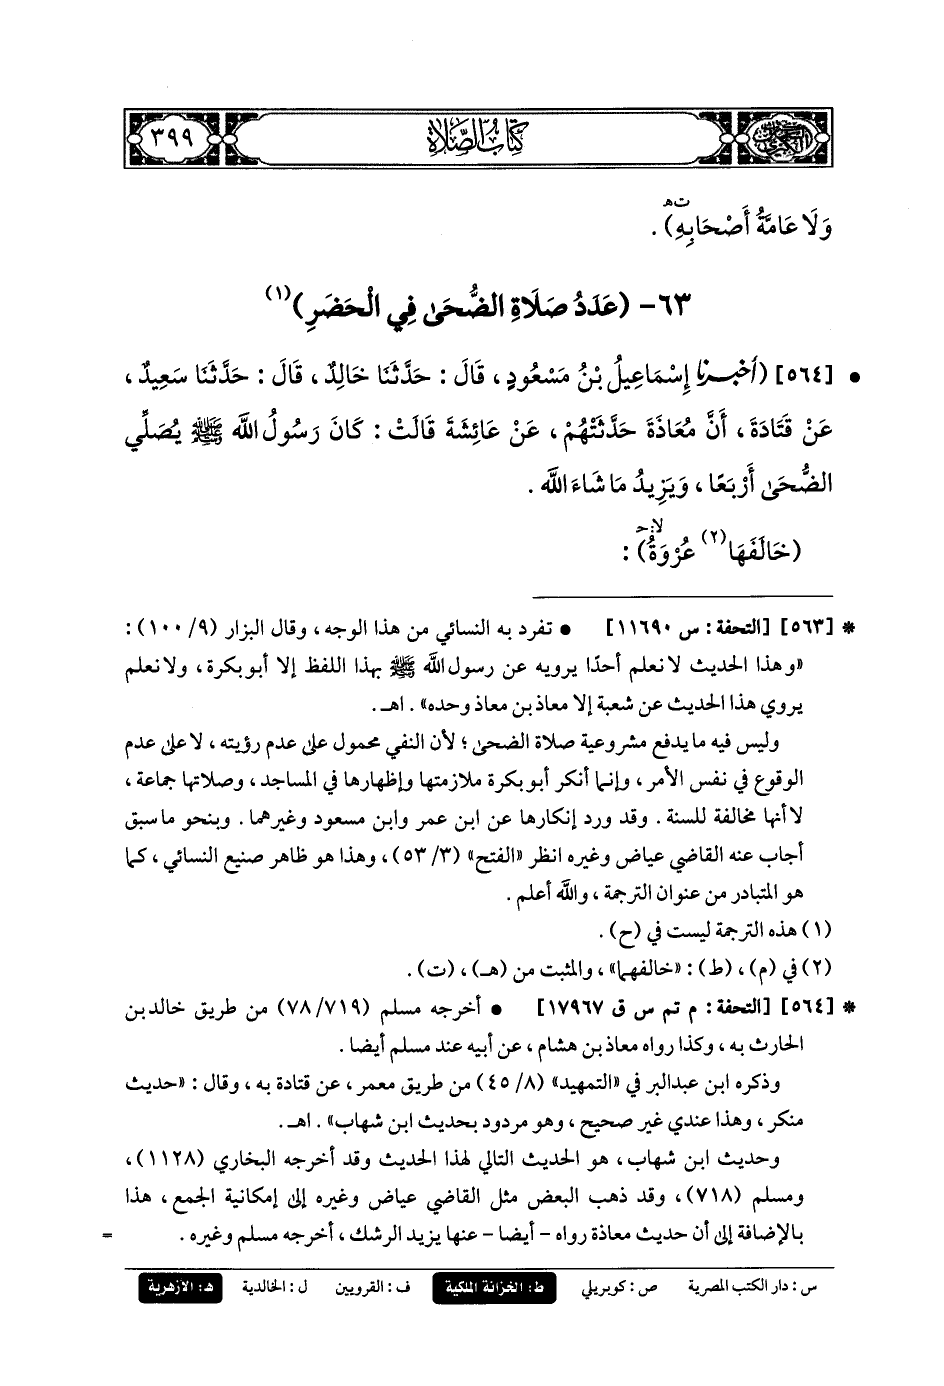 كتاب الصلاة
٣٩٩
وَلَا عَامَّةُ أَصْحَابِهِ) .
٦٣- (عَدَدُ صَلَاةِ الضُّحَىٰ فِي الْحَضَرِ)(١)
• [٥٦٤] (أَخْبَرَنَا إِسْمَاعِيلُ بْنُ مَسْعُودٍ، قَالَ : حَدَّثَنَا خَالِدٌ، قَالَ : حَدَّثَنَا سَعِيدٌ،
عَنْ قَتَادَةَ، أَنَّ مُعَاذَةَ حَدَّثَتْهُمْ، عَنْ عَائِشَةَ قَالَتْ : كَانَ رَسُولُ اللَّه ﷺ يُصَلِّي
الضُّحَىٰ أَرْبَعًا، وَيَزِيدُ مَا شَاءَ اللَّه .
(خَالَفَهَا(٢) عُرْوَةُ) :
* [٥٦٣] [التحفة : س ١١٦٩٠] • تفرد به النسائي من هذا الوجه، وقال البزار (٩/ ١٠٠) :
«وهذا الحديث لا نعلم أحدًا يرويه عن رسول اللَّه ﷺ بهذا اللفظ إلا أبو بكرة، ولا نعلم
يروي هذا الحديث عن شعبة إلا معاذ بن معاذ وحده» . اهـ .
وليس فيه ما يدفع مشروعية صلاة الضحى ؛ لأن النفي محمول على عدم رؤيته، لا على عدم
الوقوع في نفس الأمر، وإنما أنكر أبو بكرة ملازمتها وإظهارها في المساجد، وصلاتها جماعة،
لا أنها مخالفة للسنة . وقد ورد إنكارها عن ابن عمر وابن مسعود وغيرهما . وبنحو ما سبق
أجاب عنه القاضي عياض وغيره انظر «الفتح» (٣/ ٥٣)، وهذا هو ظاهر صنيع النسائي، كما
هو المتبادر من عنوان الترجمة، واللَّه أعلم .
(١) هذه الترجمة ليست في (ح) .
(٢) في (م)، (ط) : «خالفهما»، والمثبت من (هـ)، (ت) .
* [٥٦٤] [التحفة : م تم س ق ١٧٩٦٧] • أخرجه مسلم (٧٨/٧١٩) من طريق خالد بن
الحارث به، وكذا رواه معاذ بن هشام، عن أبيه عند مسلم أيضا .
وذكره ابن عبدالبر في «التمهيد» (٨/ ٤٥) من طريق معمر، عن قتادة به، وقال : «حديث
منكر، وهذا عندي غير صحيح، وهو مردود بحديث ابن شهاب» . اهـ .
وحديث ابن شهاب، هو الحديث التالي لهذا الحديث وقد أخرجه البخاري (١١٢٨)،
ومسلم (٧١٨)، وقد ذهب البعض مثل القاضي عياض وغيره إلى إمكانية الجمع، هذا
بالإضافة إلى أن حديث معاذة رواه - أيضا - عنها يزيد الرشك، أخرجه مسلم وغيره . =
س : دار الكتب المصرية ص : كوبريلي ط : الخزانة الملكية ف : القرويين ل : الخالدية هـ : الأزهرية